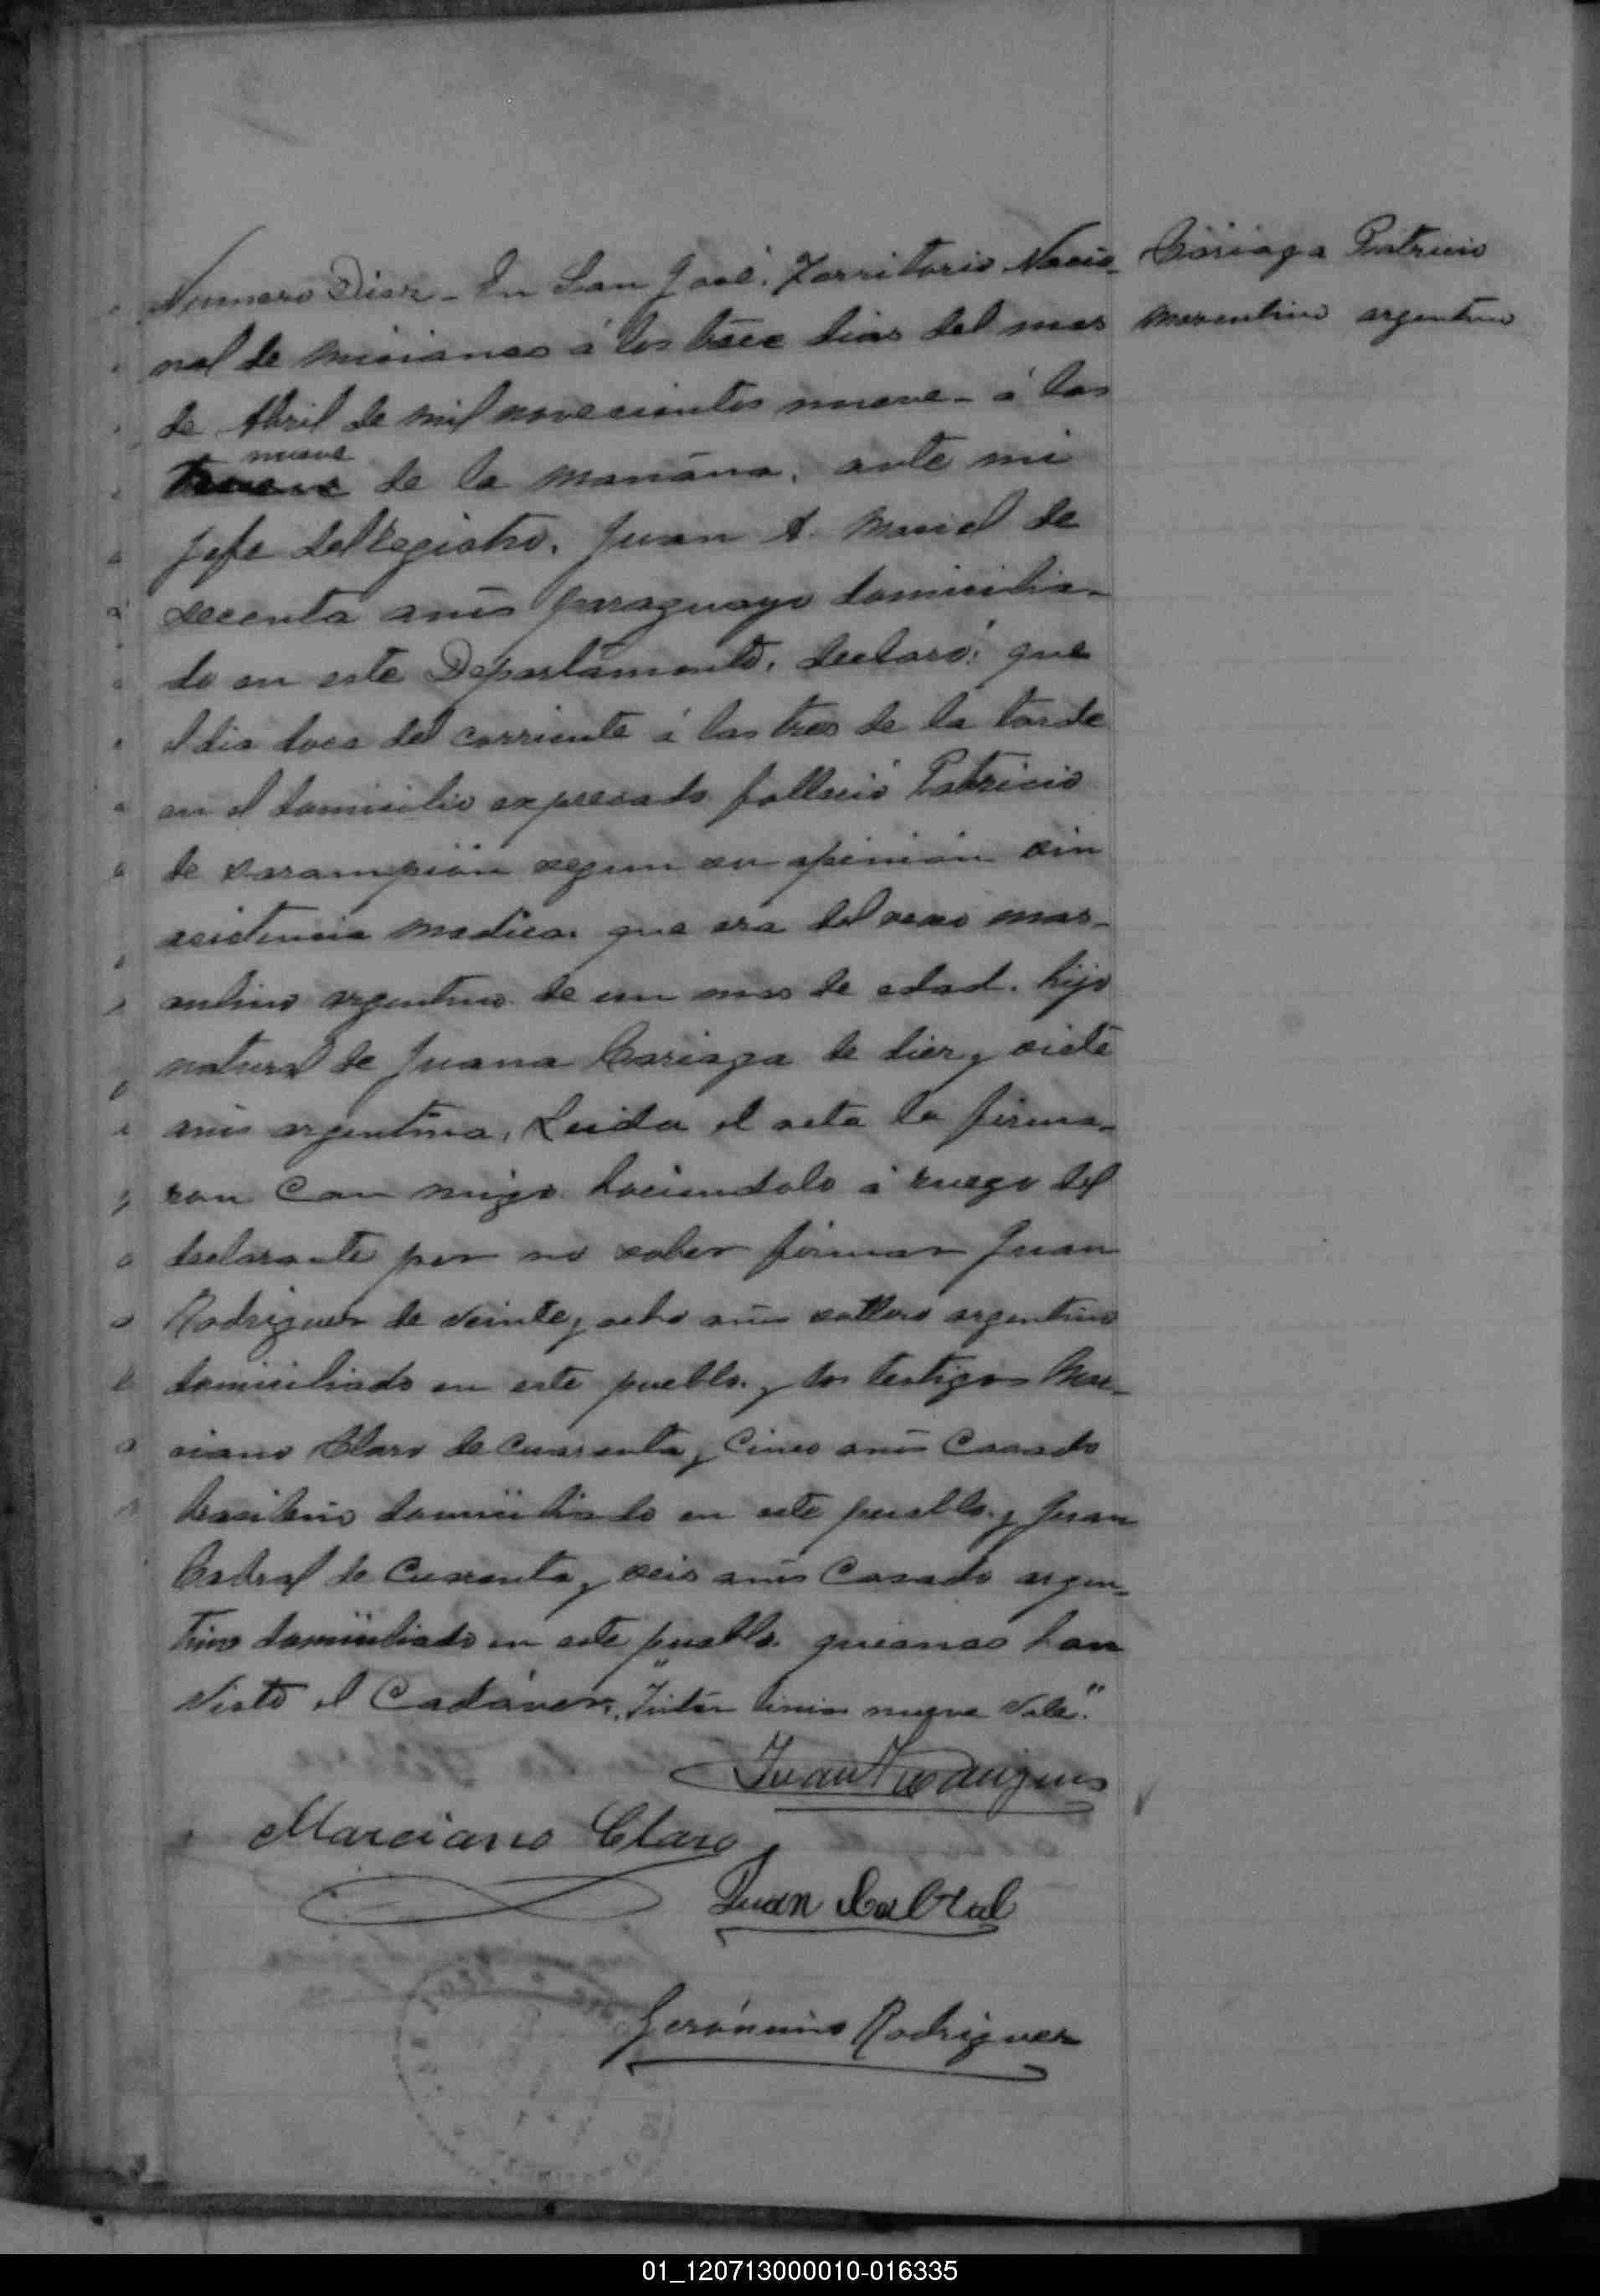 Numero Diez - En San José, Territorio Nacio-
nal de Misiones á los trece dias del mes
de Abril de mil novecientos nueve - á las
nueve
de la mañana, ante mi
Jefe del Registro, Juan A. Maciel de
secenta años paraguayo domicilia-
do en este Departamento, declaró: que
el dia doce del corriente á las tres de la tarde
en el domicilio expresado falleció Patricio
de sarampión segun su opinión sin
asistencia medica que era del sexo mas-
culino argentino de un mes de edad. hijo
natural de Juana Cariaga de diez y siete
años argentina, Leida el acta la firma-
ron con migo haciendolo á ruego del
declarante por no saber firmar Juan
Rodriguez de veinte y ocho años soltero argentino
domiciliado en este pueblo y los testigos Mar-
ciano Claro de cuarenta y cinco años Casado
brasilero domiciliado en este pueblo y Juan
Cabral de Cuarenta y seis años Casado argen-
tino domiciliado en este pueblo quienes han
visto el Cadáver, "Entre lineas nueve Vale"
Cariaga Patricio
masculino argentino
Juan Rodriguez
Marciano Claro
Juan Cabral
Gerónimo Rodriguez
01_120713000010-016335